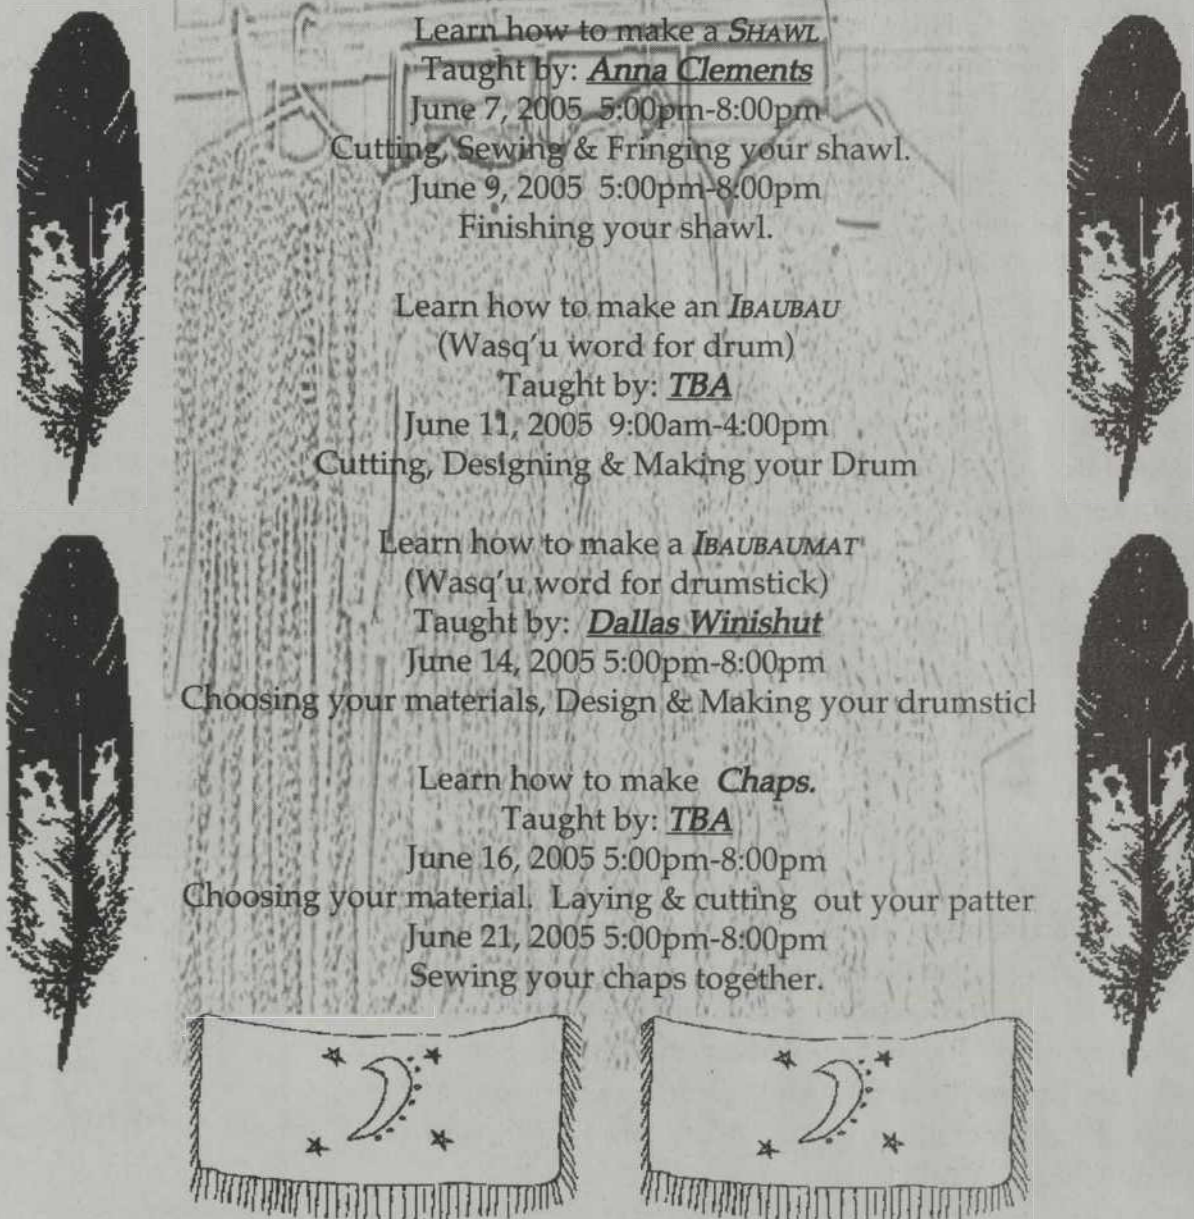 Learn how to make a SHAWL
Taught by: Anna Clements
June 7, 2005 5:00pm-8:00pm
Cutting, Sewing & Fringing your shawl.
June 9, 2005 5:00pm-8:00pm
Finishing your shawl.
Learn how to make an IBAUBAU
(Wasq'u word for drum)
Taught by: TBA
June 11, 2005 9:00am-4:00pm
Cutting, Designing & Making your Drum
Learn how to make a IBAUBAUMAT
(Wasq'u word for drumstick)
Taught by: Dallas Winishut
June 14, 2005 5:00pm-8:00pm
Choosing your materials, Design & Making your
Learn how to make Chaps.
Taught by: TBA
June 16, 2005 5:00pm-8:00pm
Choosing your material. Laying & cutting out your patter
June 21, 2005 5:00pm-8:00pm
Sewing your chaps together.